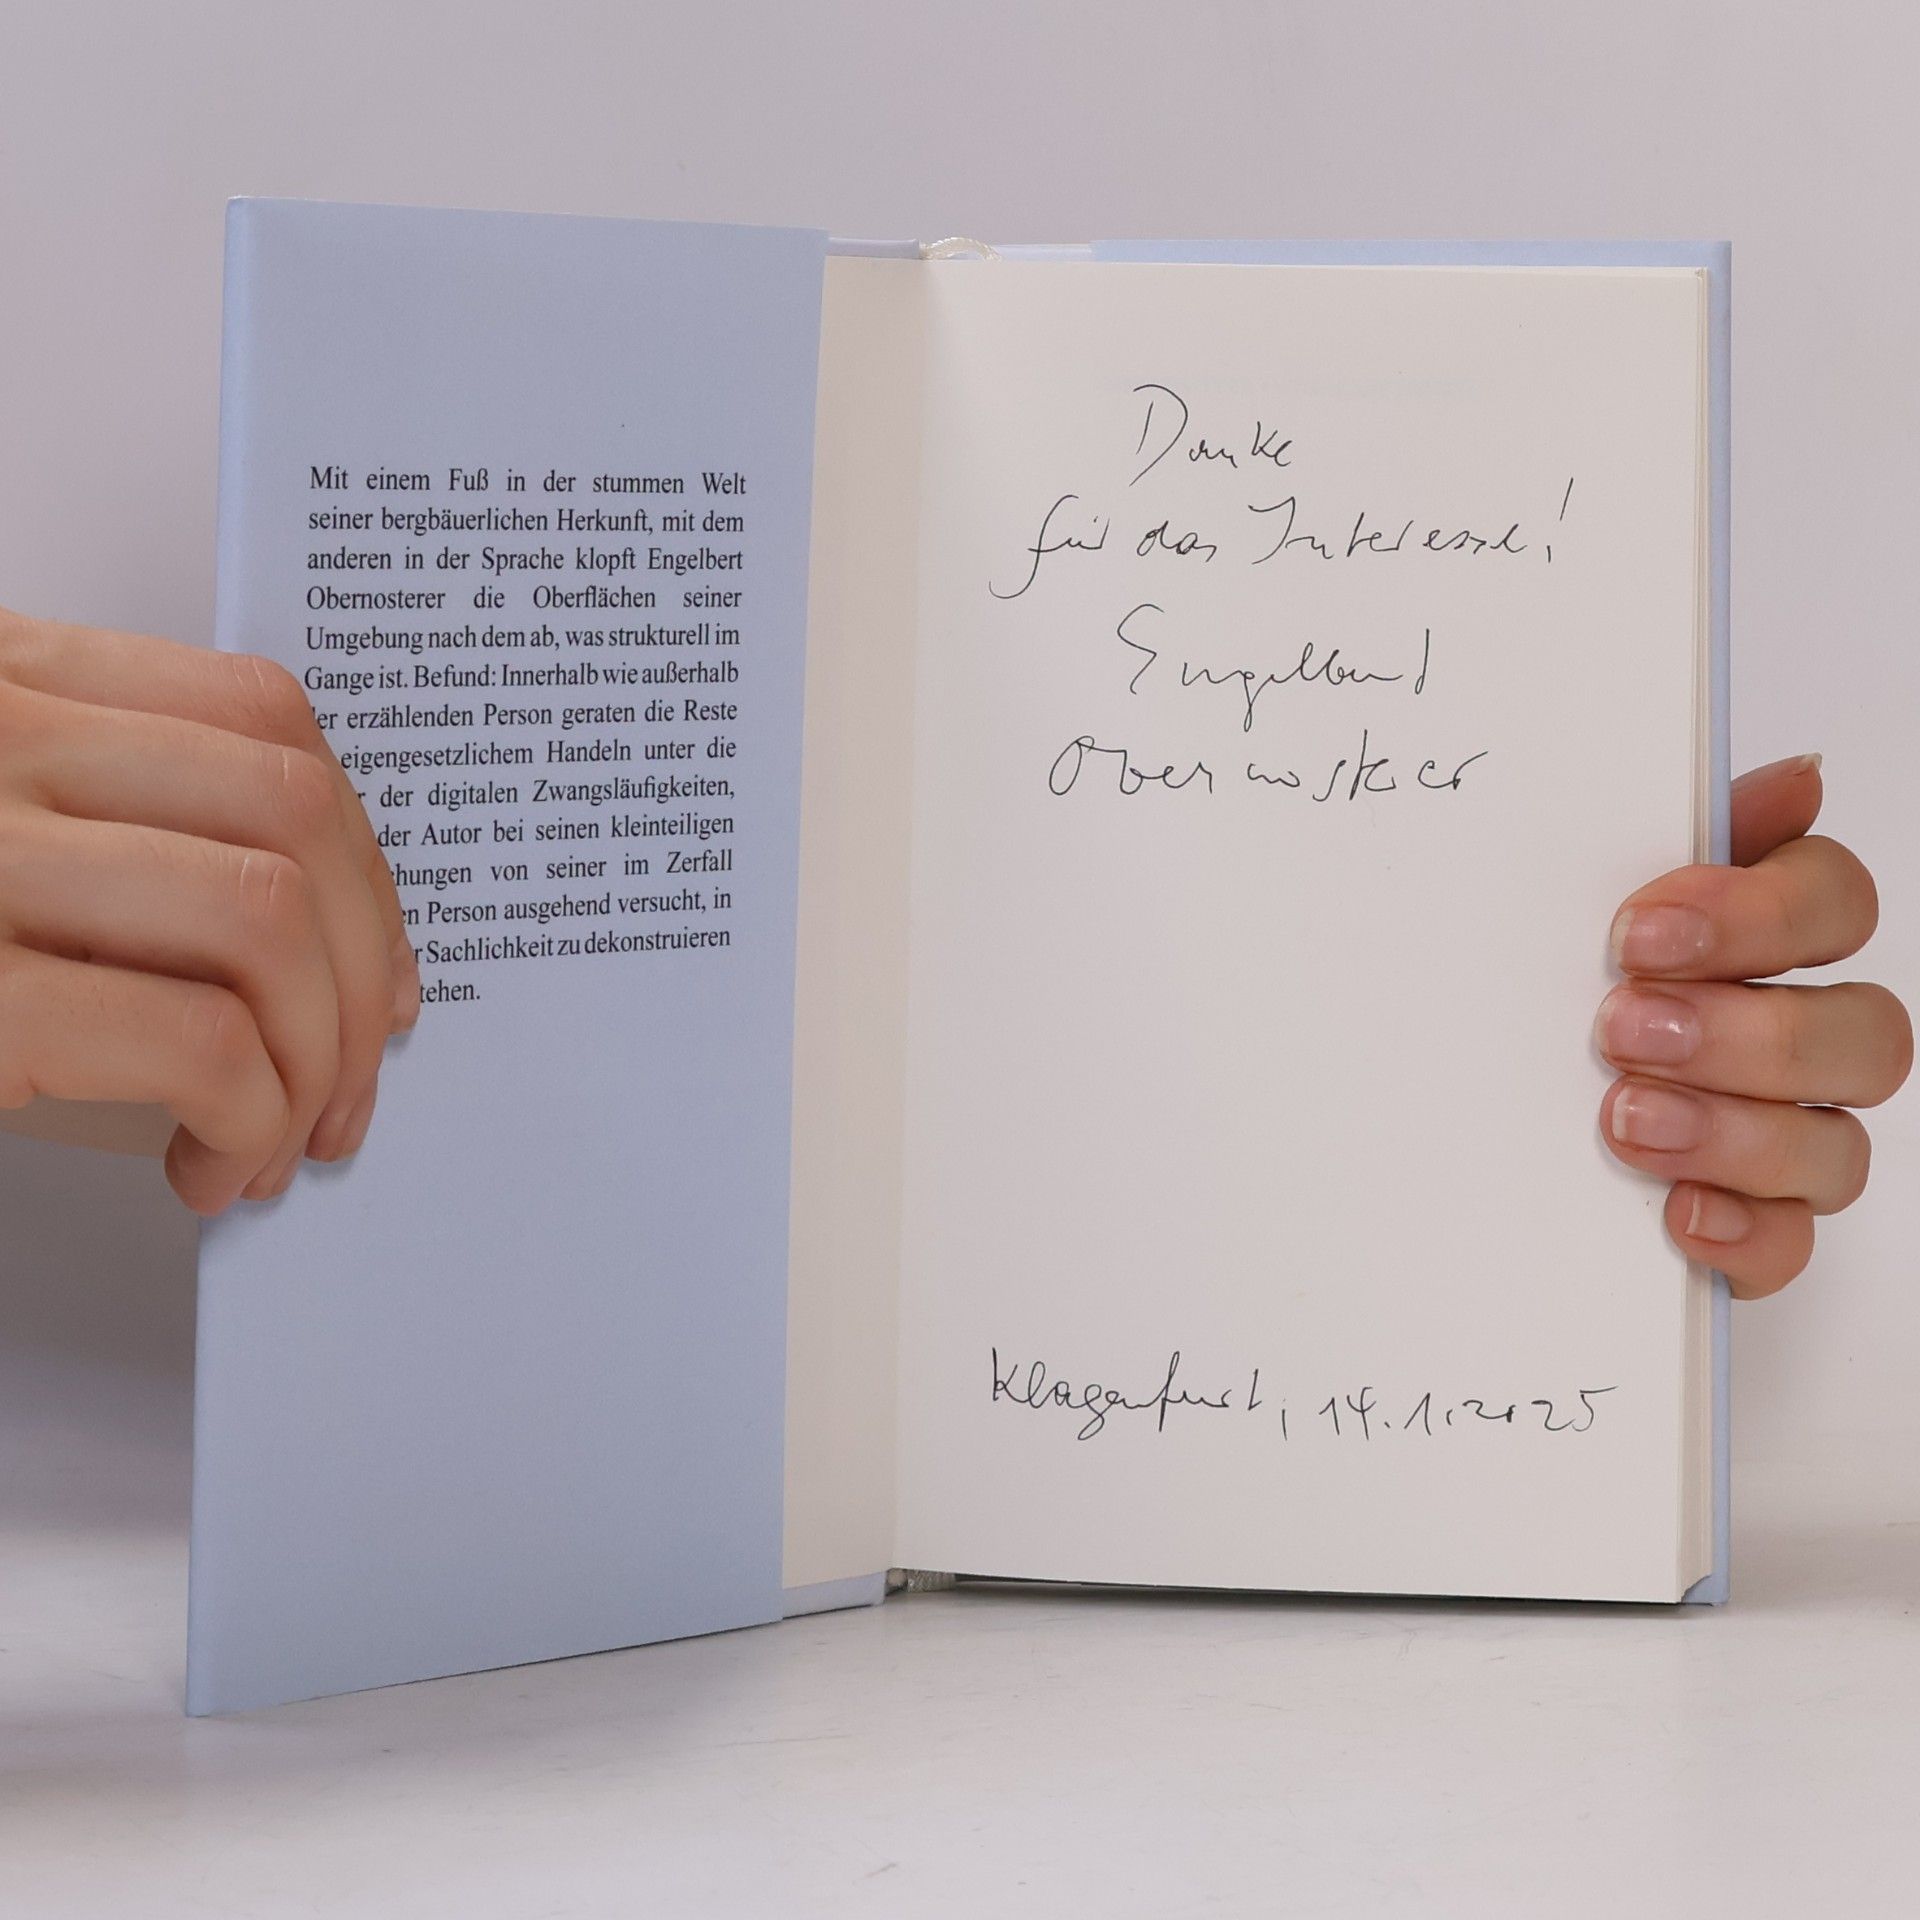 Mit einem Fuß in der stummen Welt
seiner bergbäuerlichen Herkunft, mit dem
anderen in der Sprache klopft Engelbert
Obernosterer die Oberflächen seiner
Umgebung nach dem ab, was strukturell im
Gange ist. Befund: Innerhalb wie außerhalb
der erzählenden Person geraten die Reste
eigengesetzlichem Handeln unter die
der digitalen Zwangsläufigkeiten,
der Autor bei seinen kleinteiligen
von seiner im Zerfall
Person ausgehend versucht, in
Sachlichkeit zu dekonstruieren
Danke
für das Interesse!
Engelbert
Obernosterer
Klagenfurt, 14.1.2025